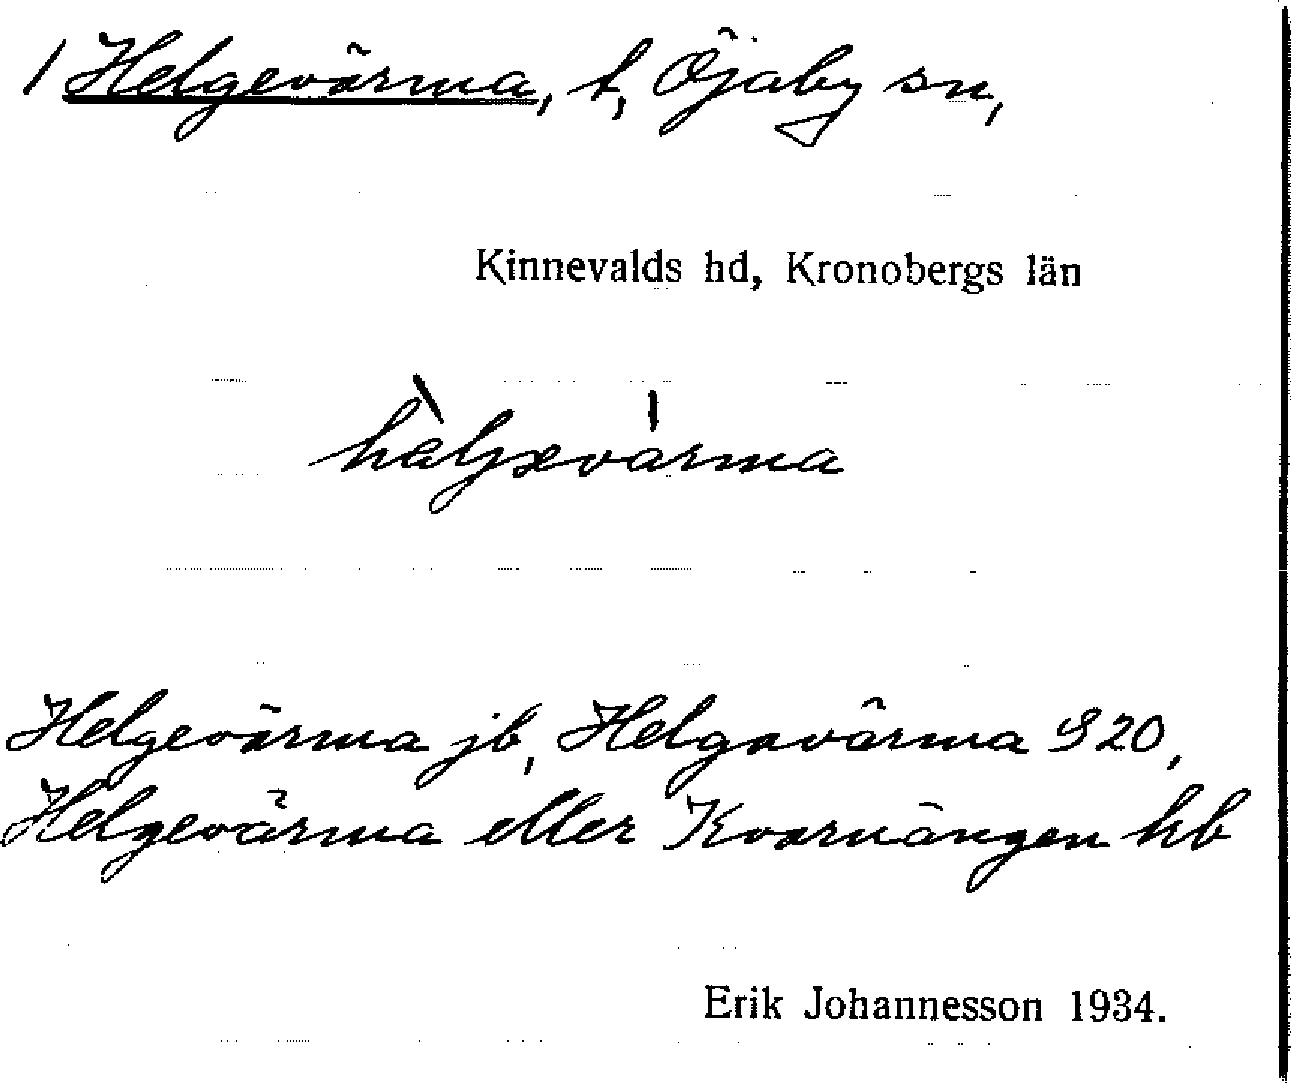 1 Helgevärma, t, Öjaby sn,
Kinnevalds hd, Kronobergs län
Helgevärma jb, Helgavärma S 20,
Helgevärma eller Kvarnängen kb
Erik Johannesson 1934.